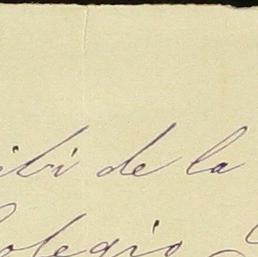 ibi de la
olegio